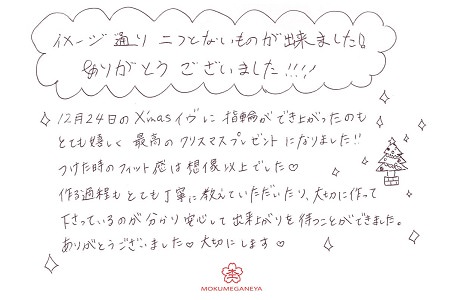 イメージ通り 二つとないものが出来ました!
ありがとうございました!!!!
12月24日のXmasイヴに 指輪ができ上がったのも
とても嬉しく 最高のクリスマスプレゼントになりました!!
つけた時のフィット感は想像以上でした♡
作る過程もとても丁寧に教えていただいたり、大切に作って
下さっているのが分かり安心して出来上がりを待つことができました。
ありがとうございました♡大切にします♡
MOKUMEGANEYA